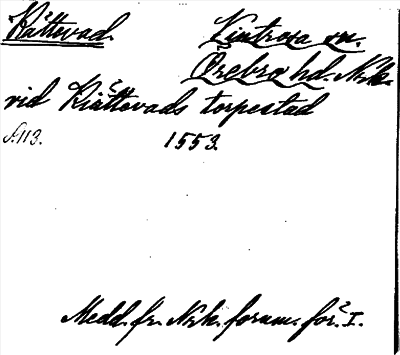 Kättevad. Vintrosa sn.
Örebro hd. Nrk.
vid Kiättevads torpestad
s. 113. 1553.
Medd. fr. Nrk. fornm.för. I.